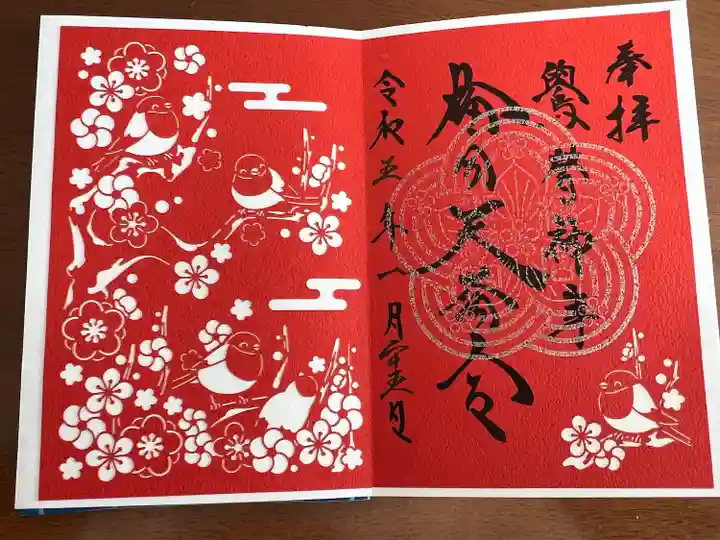 奉拝
鷽替神事
天満宮
令和五年一月二十五日